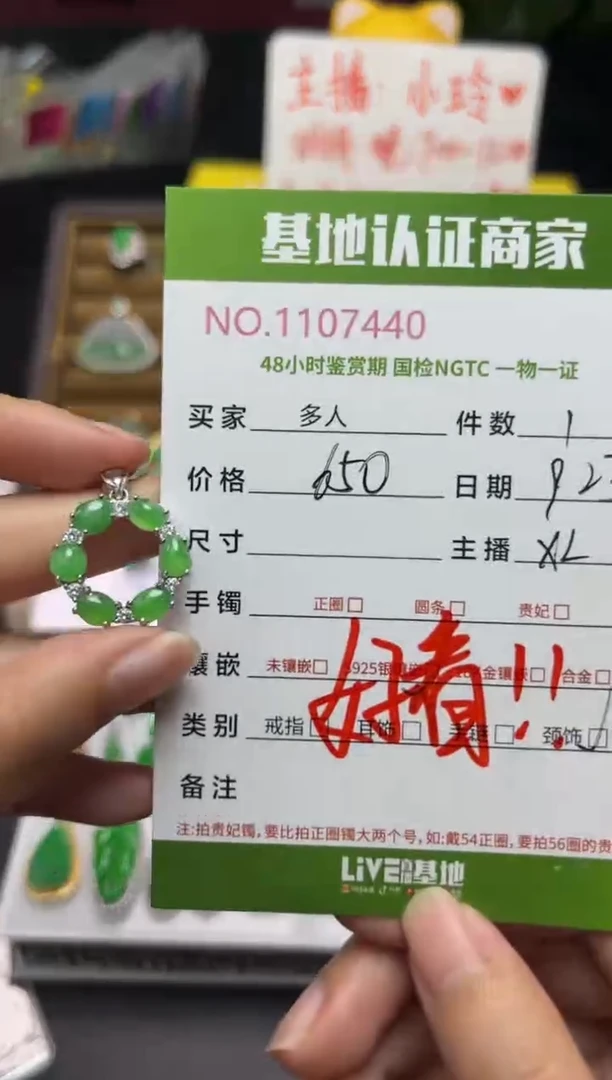 主播：小玲♥
基地认证商家
NO.1107440
48小时鉴赏期 国检NGTC 一物一证
买家 多人 件数 1
价格 650 日期 9.2
尺寸 主播 XL
手镯 正圈□ 圆条□ 贵妃□
镶嵌 未镶嵌□ S925银 金镶嵌□ 合金□
好看!!
类别 戒指□ 耳饰□ 手链□ 颈饰□
备注
注:拍贵妃镯,要比拍正圈镯大两个号,如:戴54正圈,要拍56圈的贵
LiVE 基地